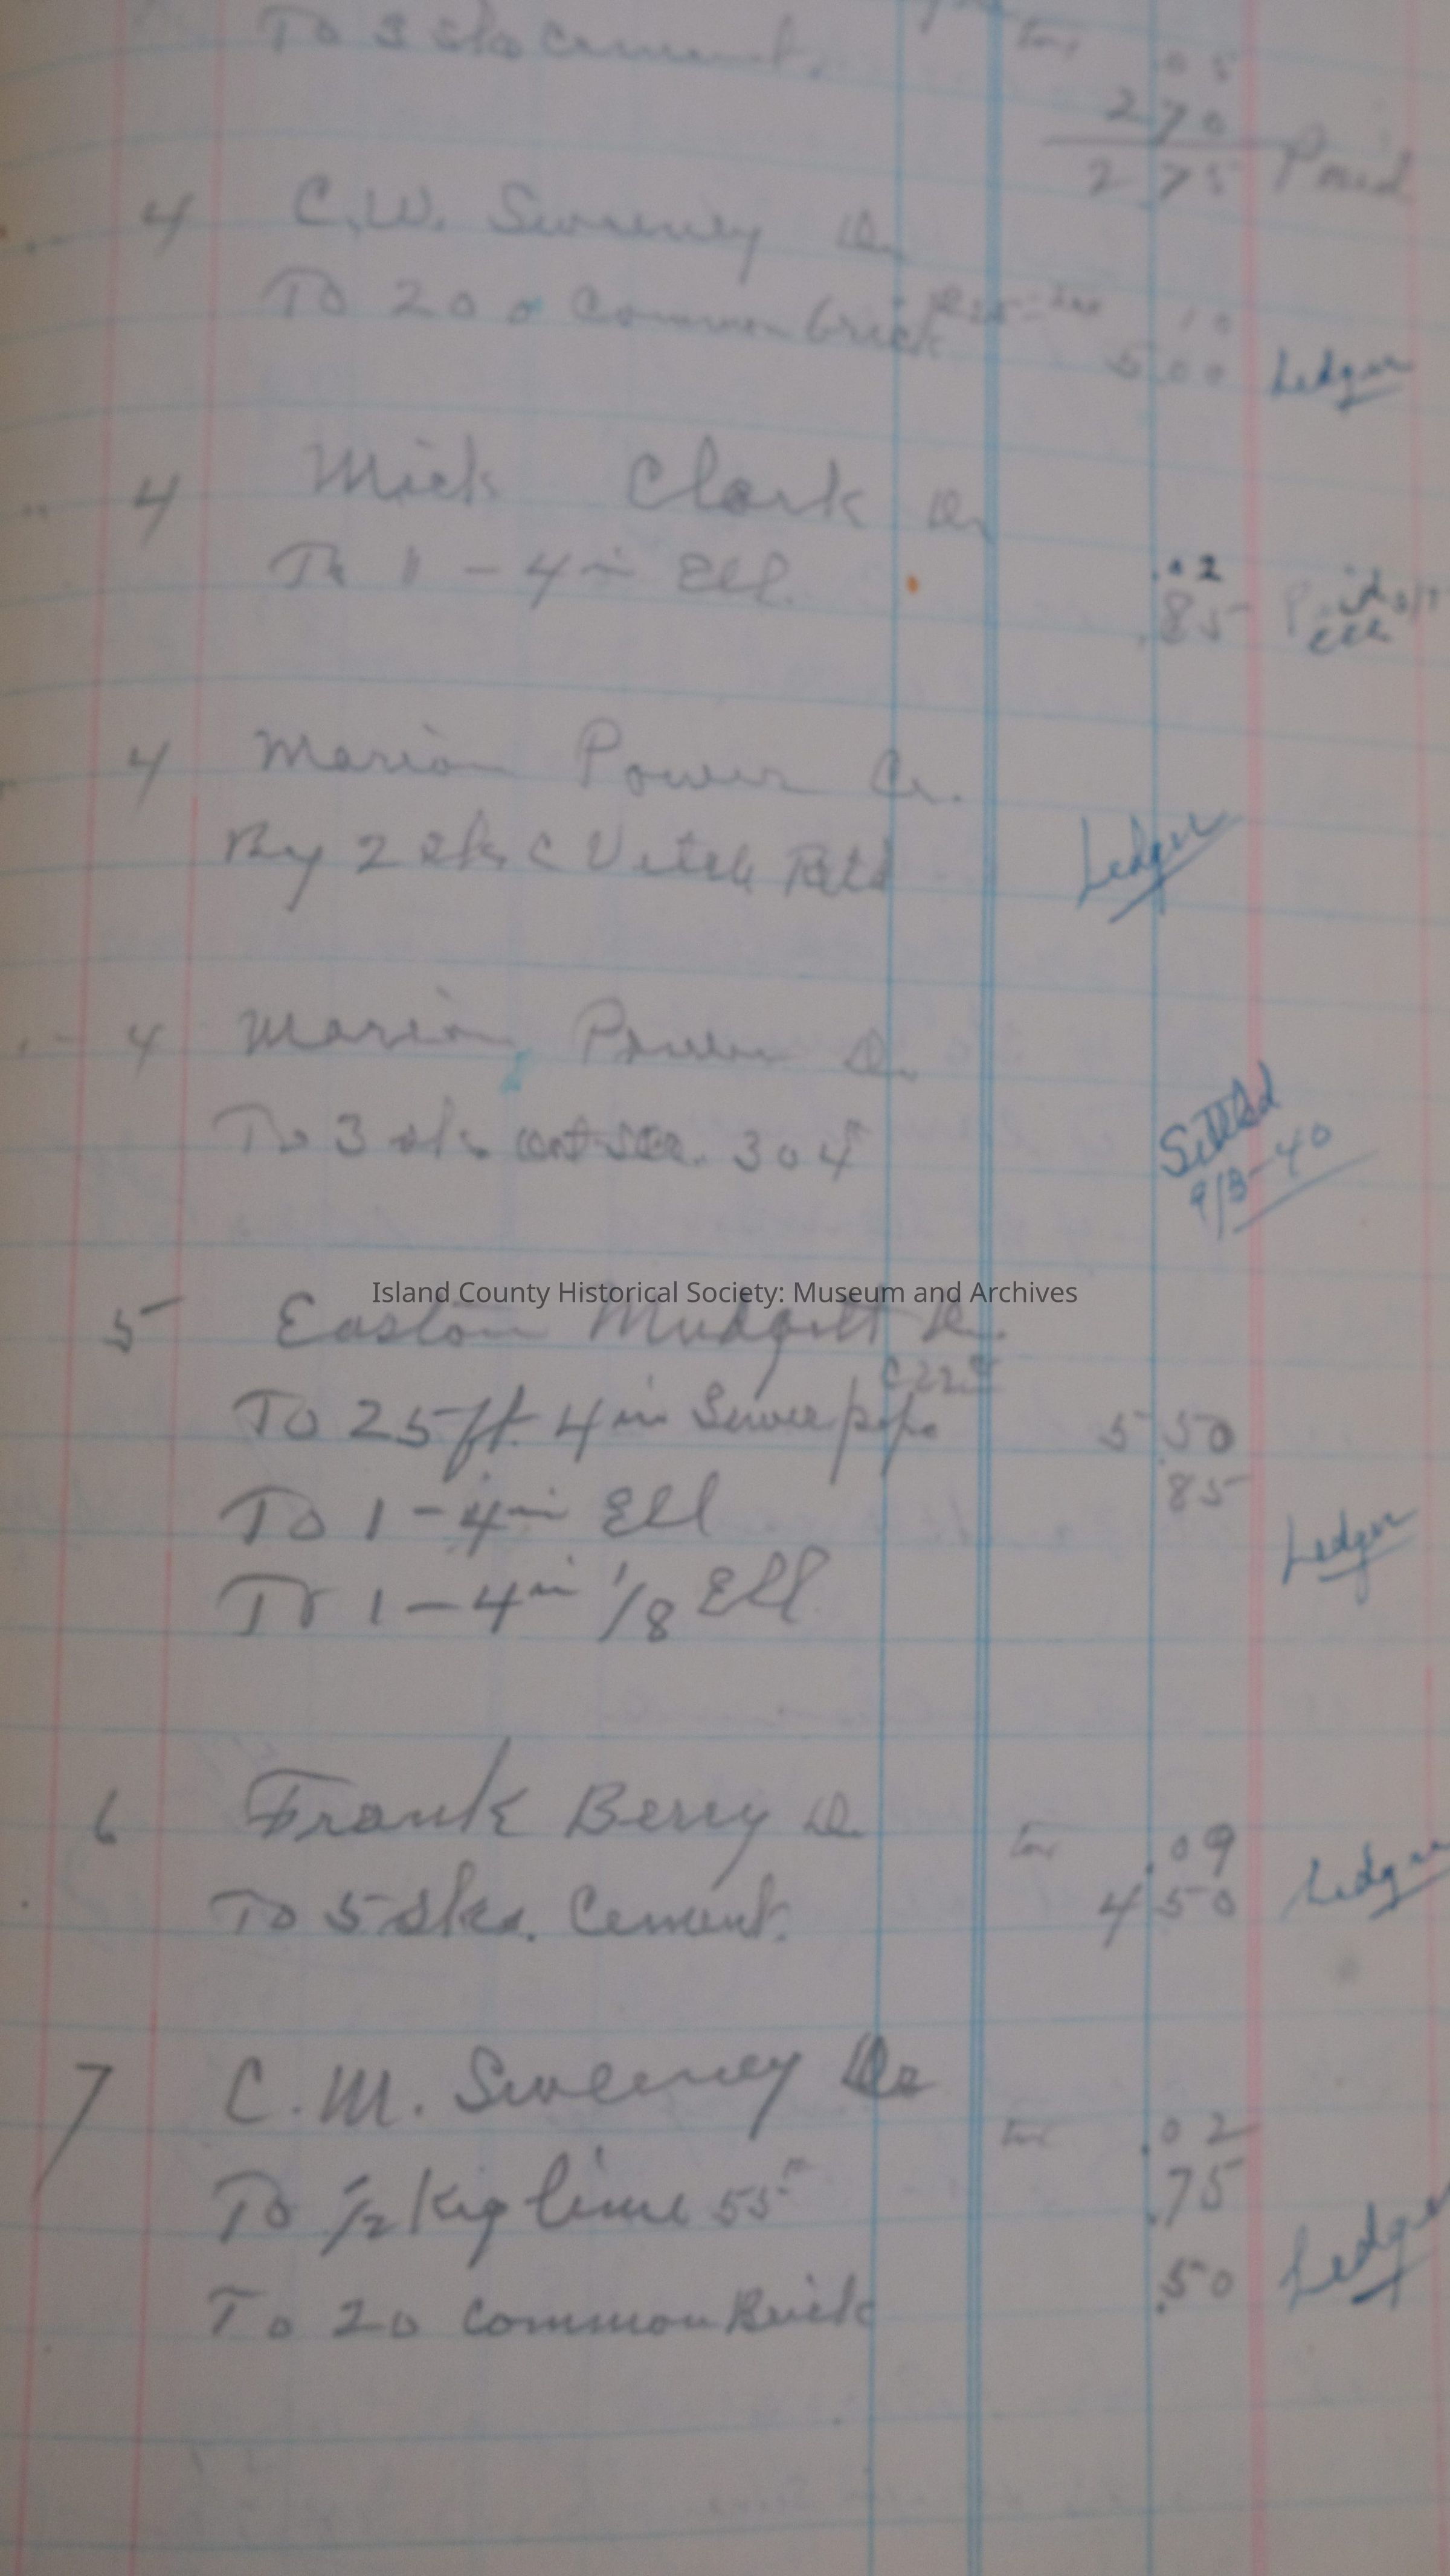 To 3 sks cement. Tax .05
2 70
2 75 Paid
4 C.W. Sweeney Dr
To 200 Common brick 10
5 00 Ledger
4 Mick Clark Dr
To 1 - 4 in Ell. .02
.85 Paid
4 Marion Power Cr.
By 2 sks C Vetch Retd Ledger
4 Marion Power Dr
To 3 sks 304 Settled
9/13-40
Island County Historical Society: Museum and Archives
5 Easton Mudgett Dr.
To 25 ft. 4 in Sewer pipe 5 50
To 1 - 4 in Ell 85
Ledger
To 1 - 4 in 1/8 Ell
6 Frank Berry Dr Tax .09
To 5 sks. Cement. 4 50 Ledger
7 C.M. Sweeney Dr
Tax .02
To 1/2 Keg lime 55# .75
Ledger
To 20 Common Brick .50